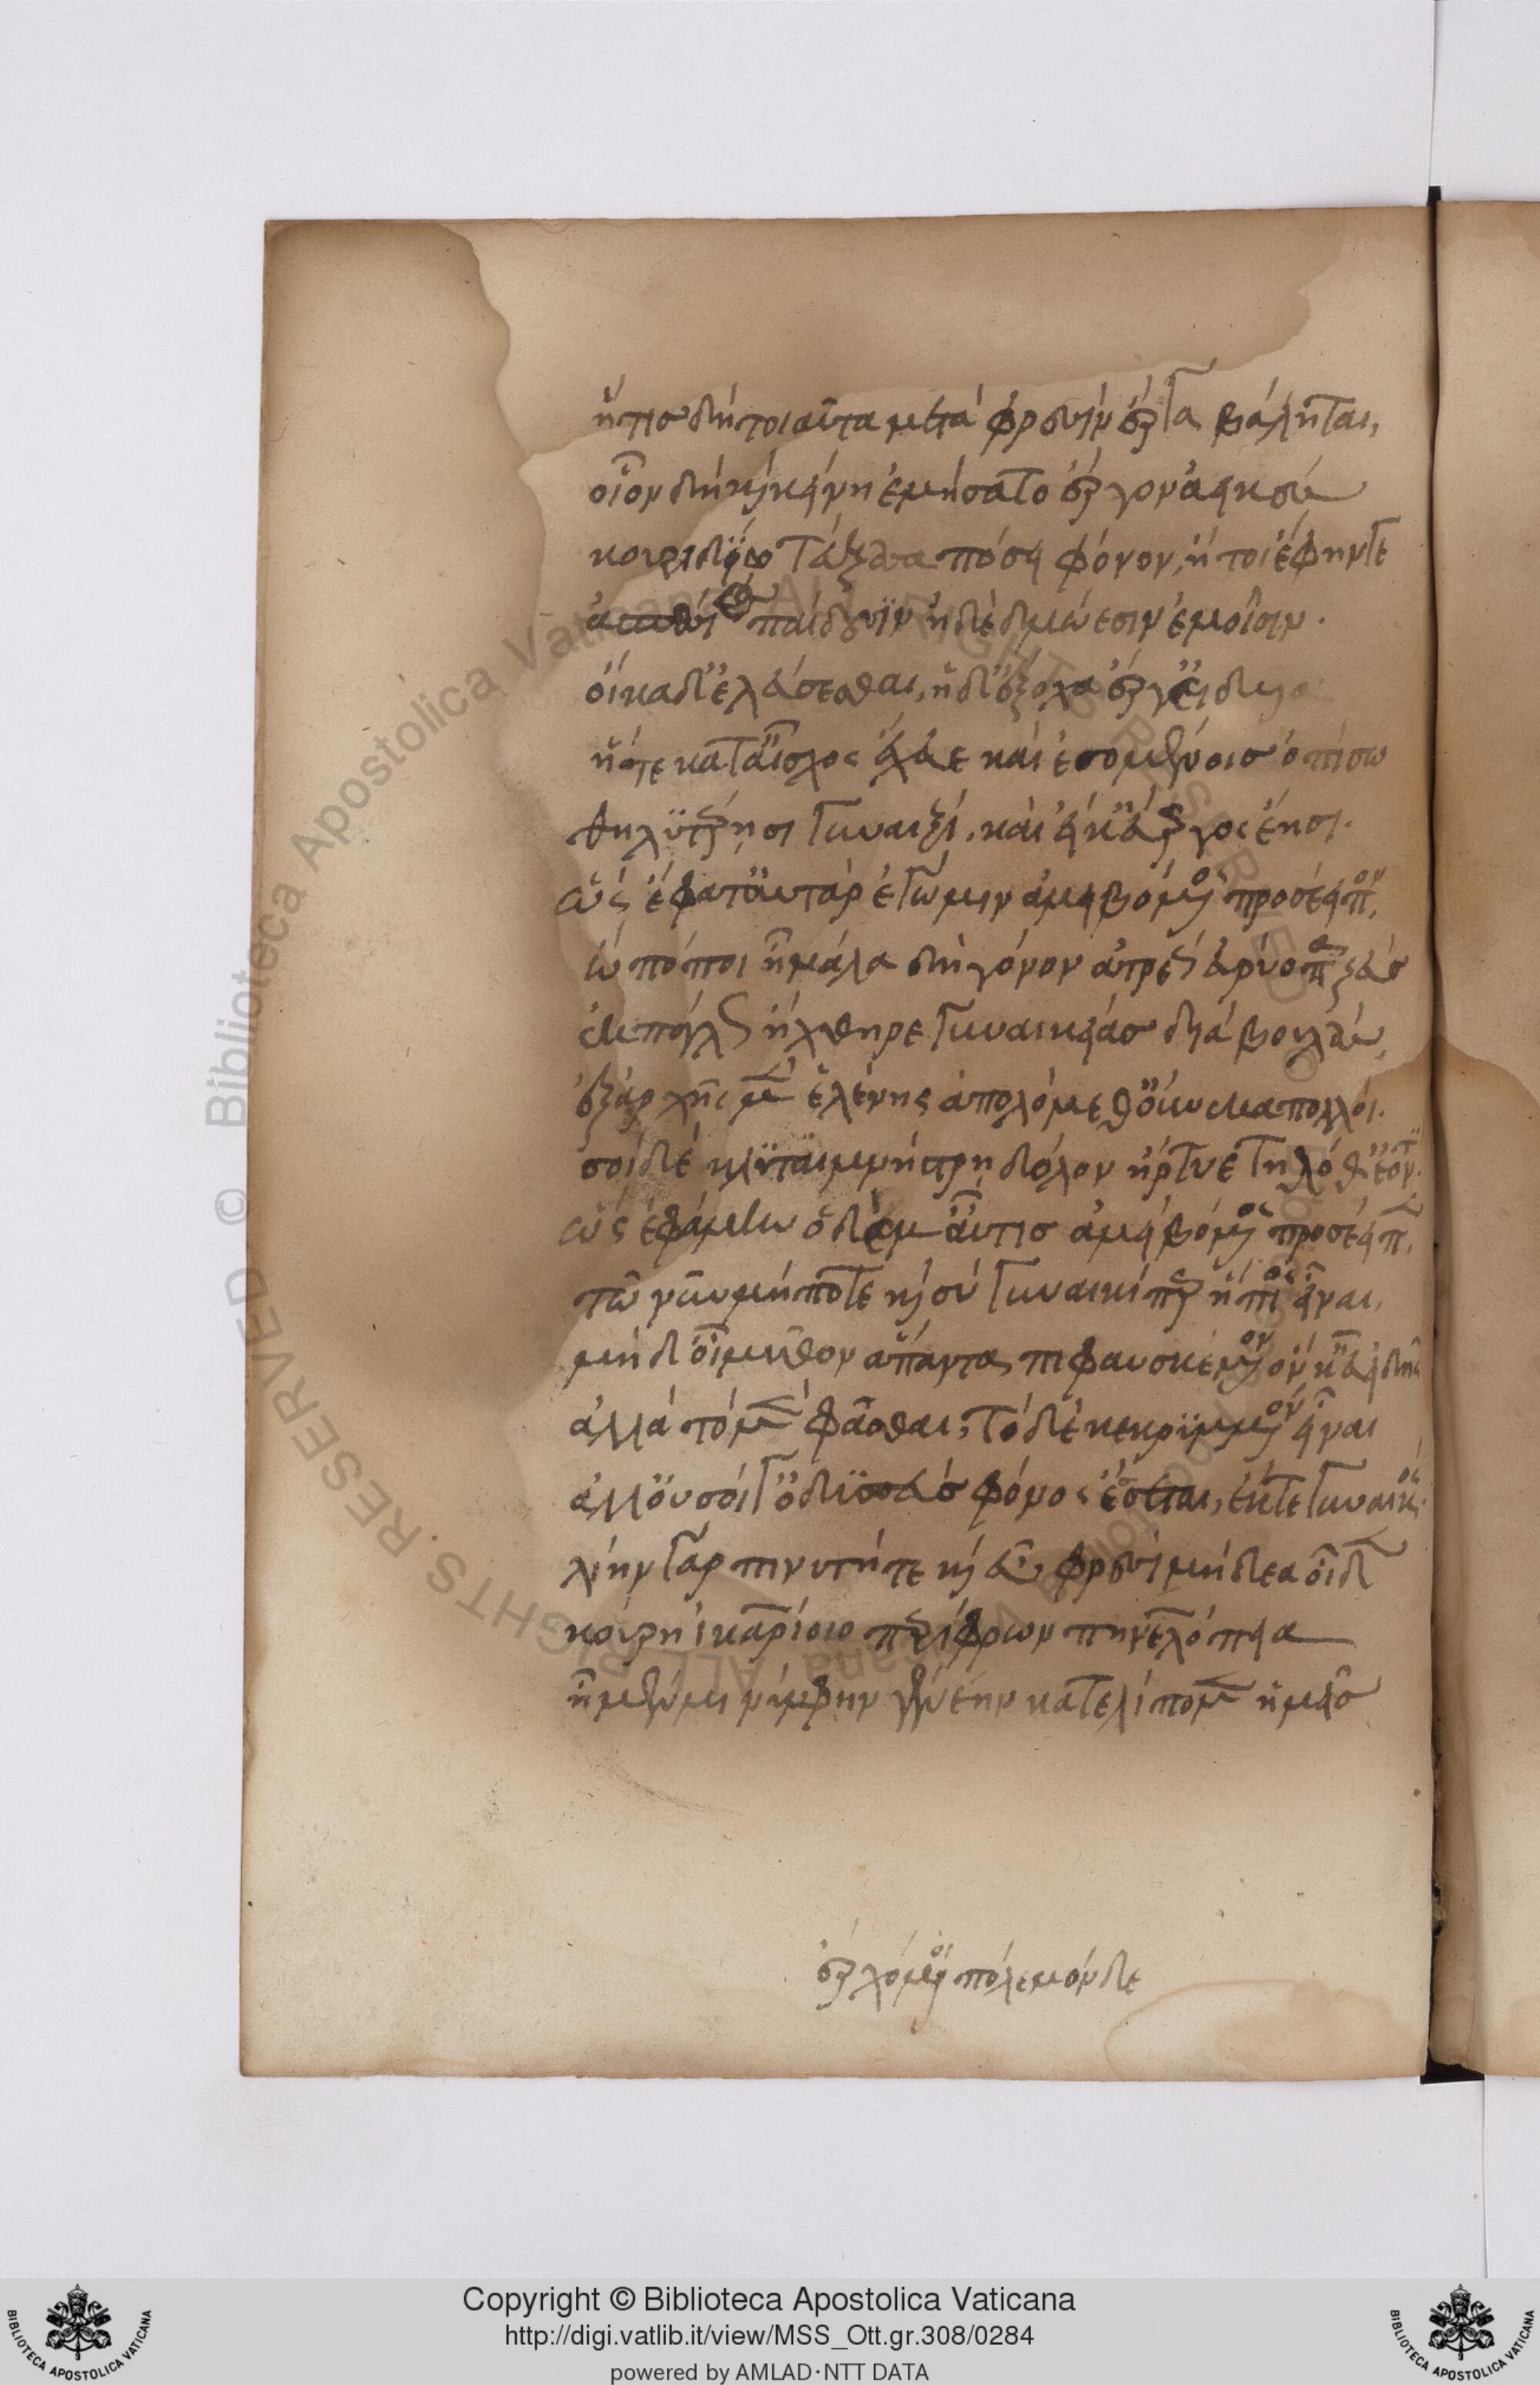 ἥτις δὴ τοιαῦτα μετὰ φρεσὶν ἔργα βάληται,
οἷον δὴ καὶ κείνη ἐμήσατο ἔργον ἀεικές
κουριδίῳ τεύξασα πόσει φόνον, ἤτοι ἔφην γε
ἀσπάσιος παίδεσσιν ἠδὲ δμώεσιν ἐμοῖσιν.
οἴκαδ' ἐλεύσεσθαι, ἡ δ' ἔξοχα λυγρὰ
ᾗ τε κατ' αἶσχος ἔχευε καὶ ἐσσομένῃσιν ὀπίσω
θηλυτέρῃσι γυναιξί, καὶ εἴ κ' εὐεργὸς ἔῃσι.
ὣς ἔφατ' αὐτὰρ ἐγώ μιν ἀμειβόμενος προσέειπον,
ὢ πόποι ἦ μάλα δὴ γόνον ἀτρέος εὐρύοπα ζεύς
ἐκπάγλως ἤχθηρε γυναικείας διὰ βουλάς,
ἐξ ἀρχῆς μὲν ἑλένης ἀπολόμεθ' οὕνεκα πολλοί.
σοὶ δὲ κλυταιμνήστρη δόλον ἤρτυε τηλόθ' ἐόντι.
ὣς ἐφάμην ὁ δέ μ' αὖτις ἀμειβόμενος προσέειπε,
τῷ νῦν μήποτε καὶ σὺ γυναικί περ ἤπιος εἶναι,
μηδ' οἱ μῦθον ἅπαντα πιφαυσκέμεν ὅν κ' εὖ εἰδῇς
ἀλλὰ τὸ μὲν φᾶσθαι, τὸ δὲ κεκρυμμένον εἶναι
ἀλλ' οὐ σοί γ' ὀδυσσεῦ φόνος ἔσσεται, ἔκ τε γυναικός.
λίην γὰρ πινυτή τε καὶ εὖ φρεσὶ μήδεα οἶδε
κούρη ἰκαρίοιο περίφρων πηνελόπεια
ἦ μέν μιν νύμφην γε νέην κατελίπομεν ἡμεῖς
ἐρχόμενοι πόλεμόνδε
Copyright © Biblioteca Apostolica Vaticana
http://digi.vatlib.it/view/MSS_Ott.gr.308/0284
powered by AMLAD·NTT DATA